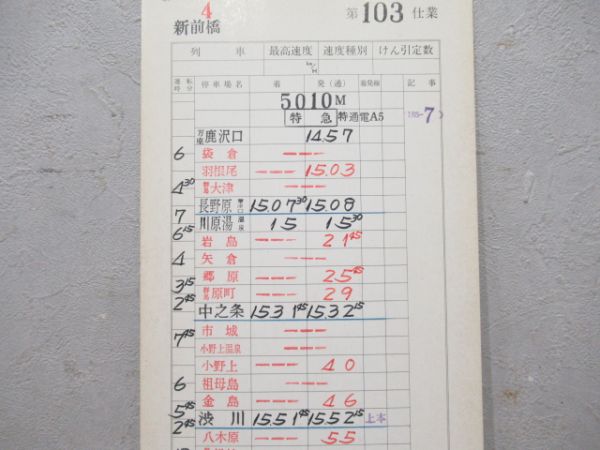 4
新前橋 第103仕業
列車 最高速度 速度種別 けん引定数
km/H
運転時分 停車場名 着 発(通) 着発線 記事
5010M
特急 特通電A5 185-7
万座鹿沢口 14.57
6 袋倉
羽根尾 15.03
4 30 群馬大津
長野原草津口 15.07 30 15.08
7
川原湯温泉 15 15 30
6 15 岩島 21 45
4 矢倉
郷原 25 45
3 15 群馬原町 29
2 45 中之条 15.31 45 15.32 15
市城
7 45 小野上温泉
小野上 40
6 祖母島
金島 46
5 45 渋川 15.51 45 15.52 15 上本
2 45 八木原 55